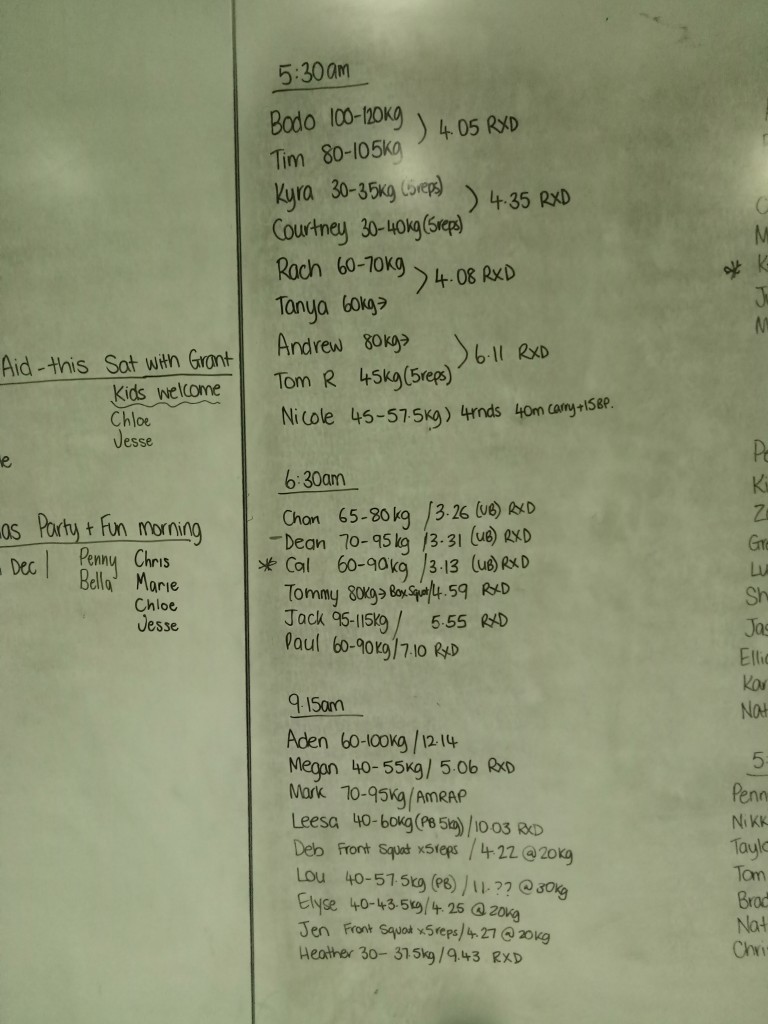 Aid - this Sat with Grant
Kids welcome
Chloe
Jesse
Party + Fun morning
Dec 1 Penny Chris
Bella Marie
Chloe
Jesse
5:30am
Bodo 100-120kg
Tim 80-105kg ) 4.05 RXD
Kyra 30-35kg (5reps)
Courtney 30-40kg (5reps) ) 4.35 RXD
Rach 60-70kg
Tanya 60kg→ ) 4.08 RXD
Andrew 80kg→
Tom R 45kg (5reps) ) 6.11 RXD
Nicole 45-57.5kg ) 4rnds 40m carry + 15BP.
6:30am
Chan 65-80kg / 3.26 (UB) RXD
- Dean 70-95kg / 3.31 (UB) RXD
* Cal 60-90kg / 3.13 (UB) RXD
Tommy 80kg→ Box Squat / 4.59 RXD
Jack 95-115kg / 5.55 RXD
Paul 60-90kg / 7.10 RXD
9.15am
Aden 60-100kg / 12.14
Megan 40-55kg / 5.06 RXD
Mark 70-95kg / AMRAP
Leesa 40-60kg (PB 5kg) / 10.03 RXD
Deb Front Squat x5reps / 4.22 @ 20kg
Lou 40-57.5kg (PB) / 11.?? @ 30kg
Elyse 40-43.5kg / 4.25 @ 20kg
Jen Front Squat x5reps / 4.27 @ 20kg
Heather 30-37.5kg / 9.43 RXD
*
Gr
Lu
Sh
Jas
Ellie
Kar
Nat
5:
Penn
Nikk
Taylo
Tom
Brad
Nat
Chri